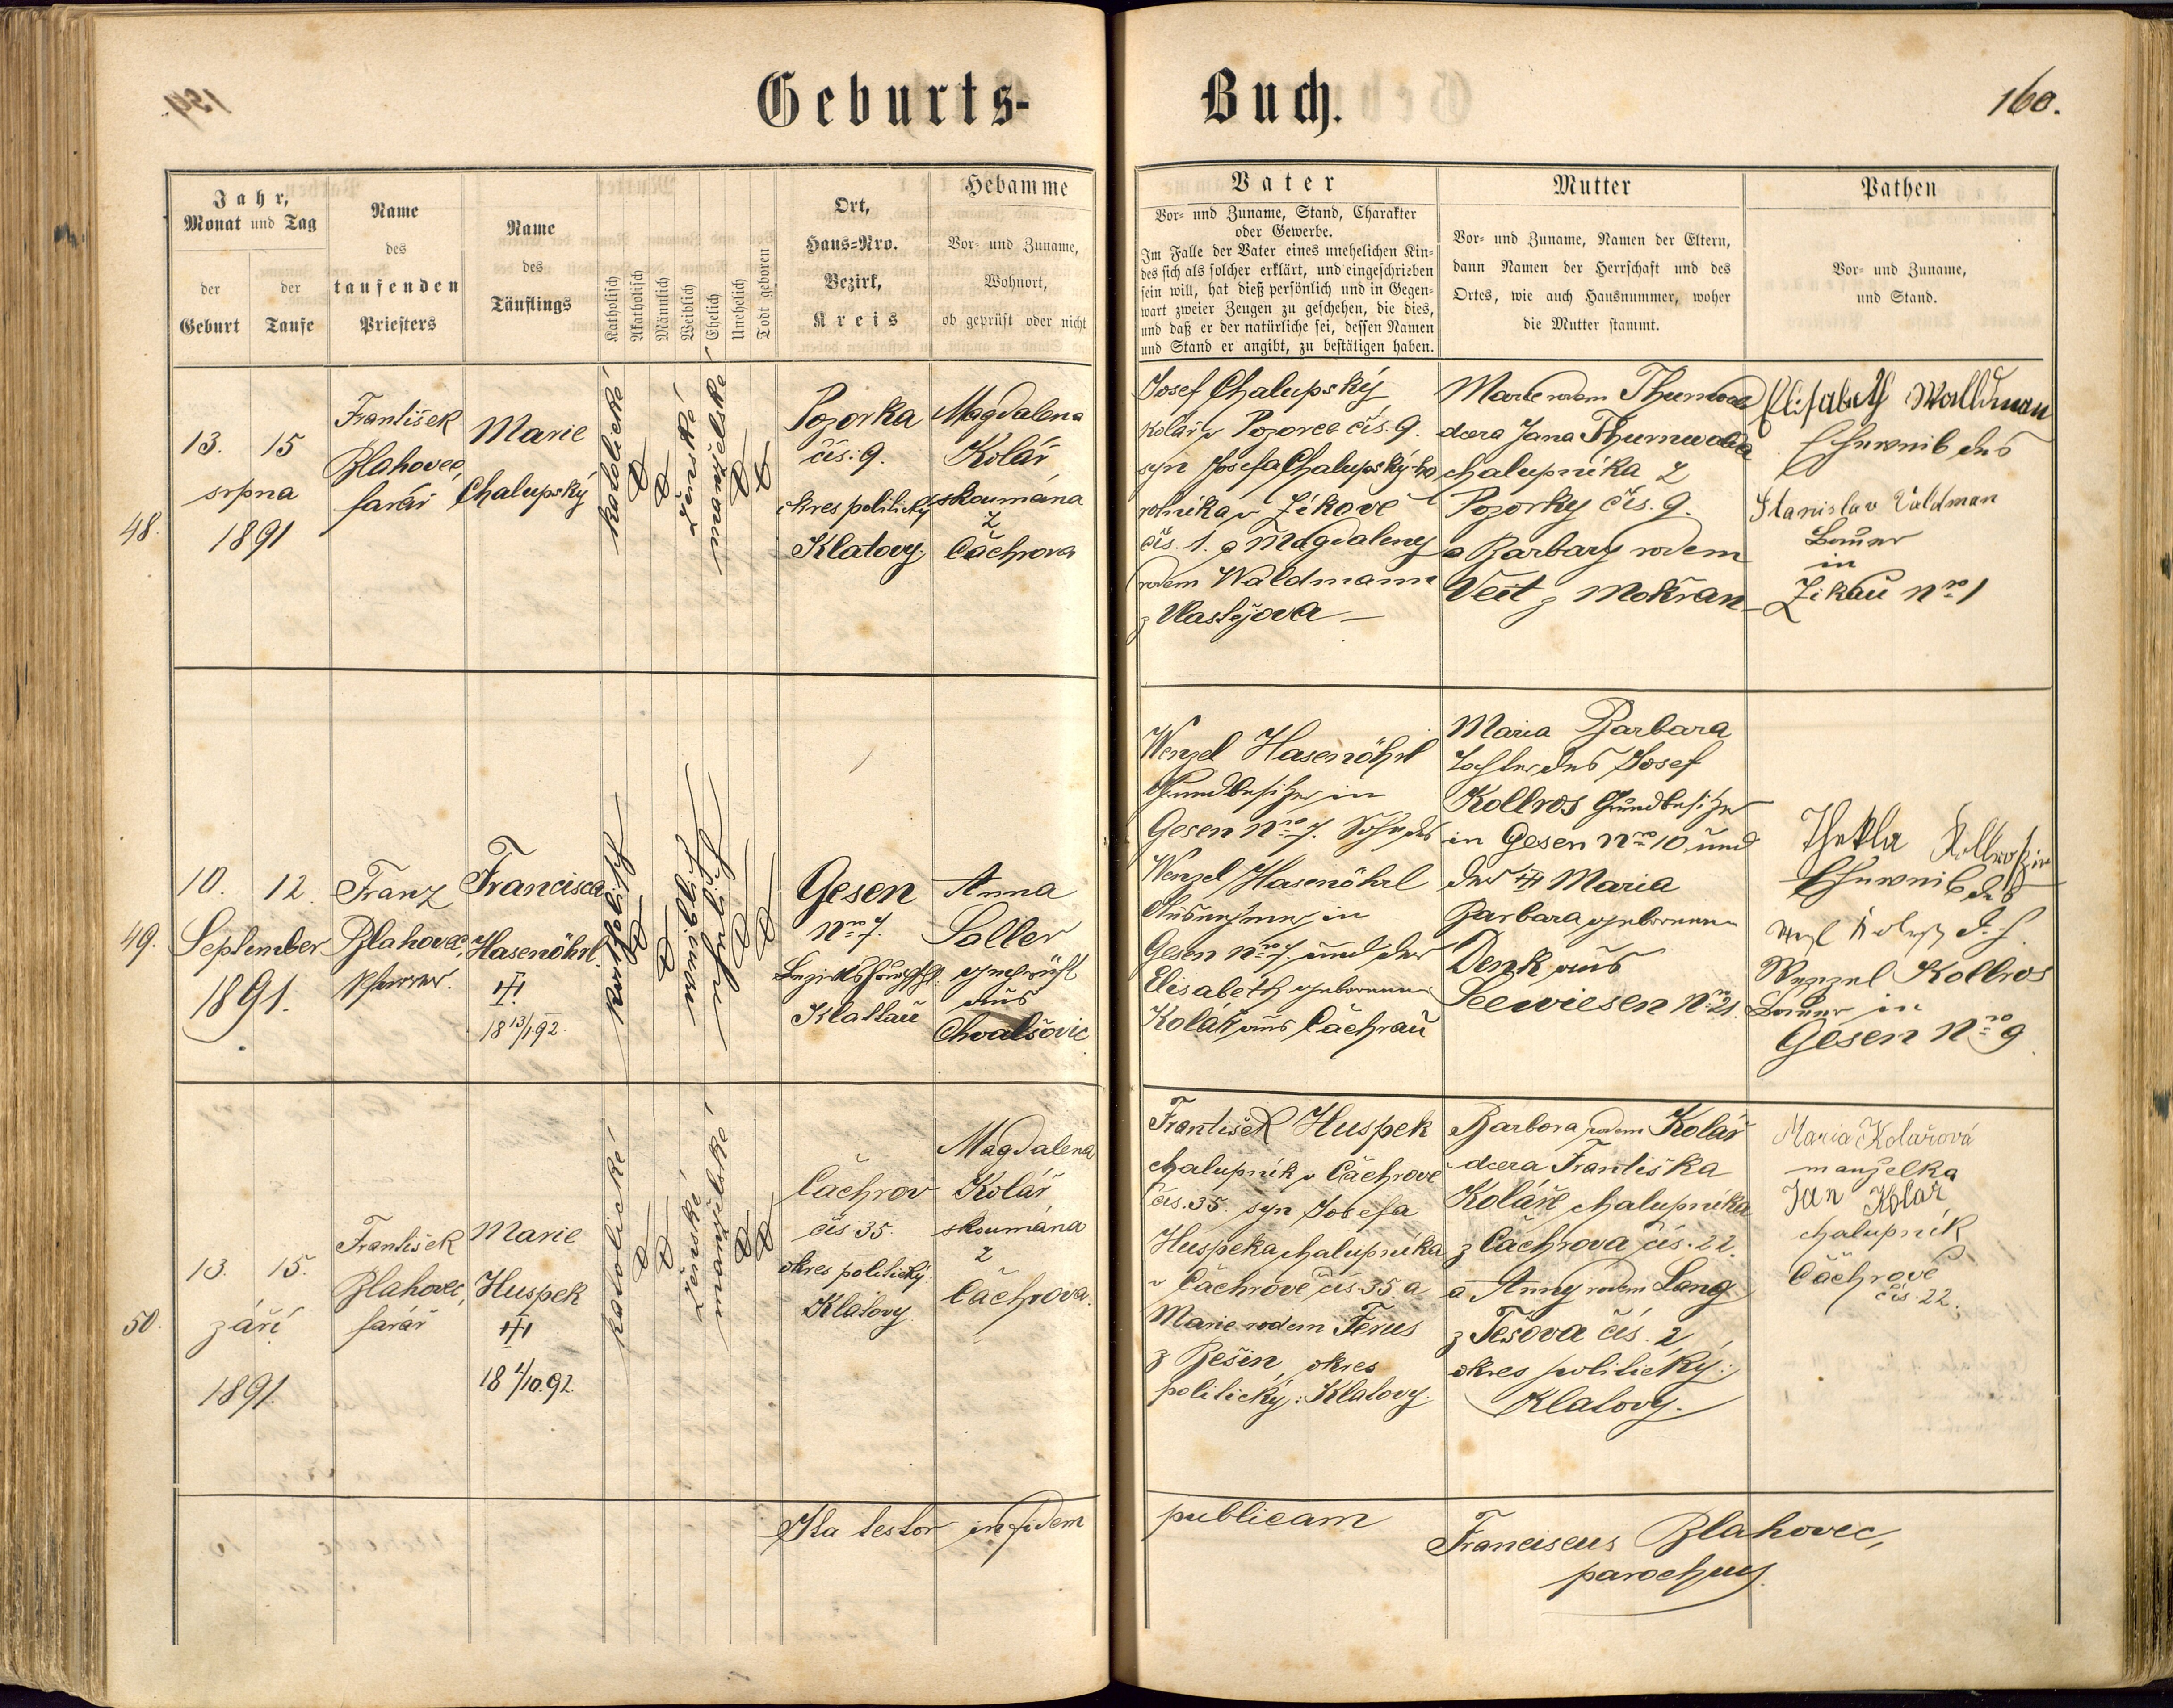 159.
Geburts-
Buch.
160.
Jahr,
Monat und Tag
der
Geburt
der
Taufe
Name
des
taufenden
Priesters
Name
des
Täuflings
Katholisch
Akatholisch
Männlich
Weiblich
Ehelich
Unehelich
Todt geboren
Ort,
Haus=Nro.
Bezirk,
Kreis
Hebamme
Vor- und Zuname,
Wohnort,
ob geprüft oder nicht
Vater
Vor- und Zuname, Stand, Charakter
oder Gewerbe.
Im Falle der Vater eines unehelichen Kin-
des sich als solcher erklärt, und eingeschrieben
sein will, hat dieß persönlich und in Gegen-
wart zweier Zeugen zu geschehen, die dies,
und daß er der natürliche sei, dessen Namen
und Stand er angibt, zu bestätigen haben.
Mutter
Vor- und Zuname, Namen der Eltern,
dann Namen der Herrschaft und des
Ortes, wie auch Hausnummer, woher
die Mutter stammt.
Pathen
Vor- und Zuname,
und Stand.
48.
13. 15
srpna
1891
František
Blahovec,
farář
Marie
Chalupský
katolické
ženské
manželské
Pozorka
čís. 9.
okres politický
Klatovy.
Magdalena
Kolář
skoumána
z
Čachrova
Josef Chalupský
kolář v Pozorce čís. 9.
syn Josefa Chalupský-ho
rolníka v Žikově
čís. 1. a Magdaleny
rodem Waldmann
z Vlastějova —
Marie rodem Thurnwald
dcera Jana Thurnwalda
chalupníka z
Pozorky čís. 9.
a Barbary rodem
Veit z Mokřan
Elisabeth Walldman
Eheweib des
Stanislav Valdman
Bauer
in
Zikau Nro 1
49.
10. 12.
September
1891.
Franz
Blahovec,
Pfarrer.
Francisca
Hasenöhrl.
18 13/1 92.
katholisch
weiblich
ehelich
Gesen
Nro 7.
Bezirkshauptft.
Klattau
Anna
Soller
geprüft
aus
Chvalšovic
Wenzel Hasenöhrl
Grundbesitzer in
Gesen Nro 7. Sohn des
Wenzel Hasenöhrl
Ausnehmer in
Gesen Nro 7. und der
Elisabeth geborenen
Kolář aus Čachrau
Maria Barbara
Tochter des Josef
Kollros Grundbesitzer
in Gesen Nro 10 und
der Maria
Barbara geborenen
Denk aus
Seewiesen Nro 21.
Thekla Kollroszin
Eheweib des
Wenzel Kollros
Bauer in
Gesen Nro 9
50.
13. 15.
září
1891.
František
Blahovec,
farář
Marie
Huspek
18 4/10. 92.
katolické
ženské
manželské
Čachrov
čís. 35.
okres politický:
Klatovy.
Magdalena
Kolář
skoumána
z
Čachrova.
František Huspek
chalupník v Čachrově
čís. 35. syn Josefa
Huspeka chalupníka
v Čachrově čís. 35. a
Marie rodem Ferus
z Běšin, okres
politický: Klatovy.
Barbora rodem Kolář
dcera Františka
Koláře chalupníka
z Čachrova čís. 22.
a Anny rodem Lang
z Tešova čís. 2,
okres politický:
Klatovy.
Maria Kolařová
manželka
Jan Kolař
chalupník
Čachrově
čís. 22.
Ita testor in fidem
publicam
Franciscus Blahovec,
parochus.